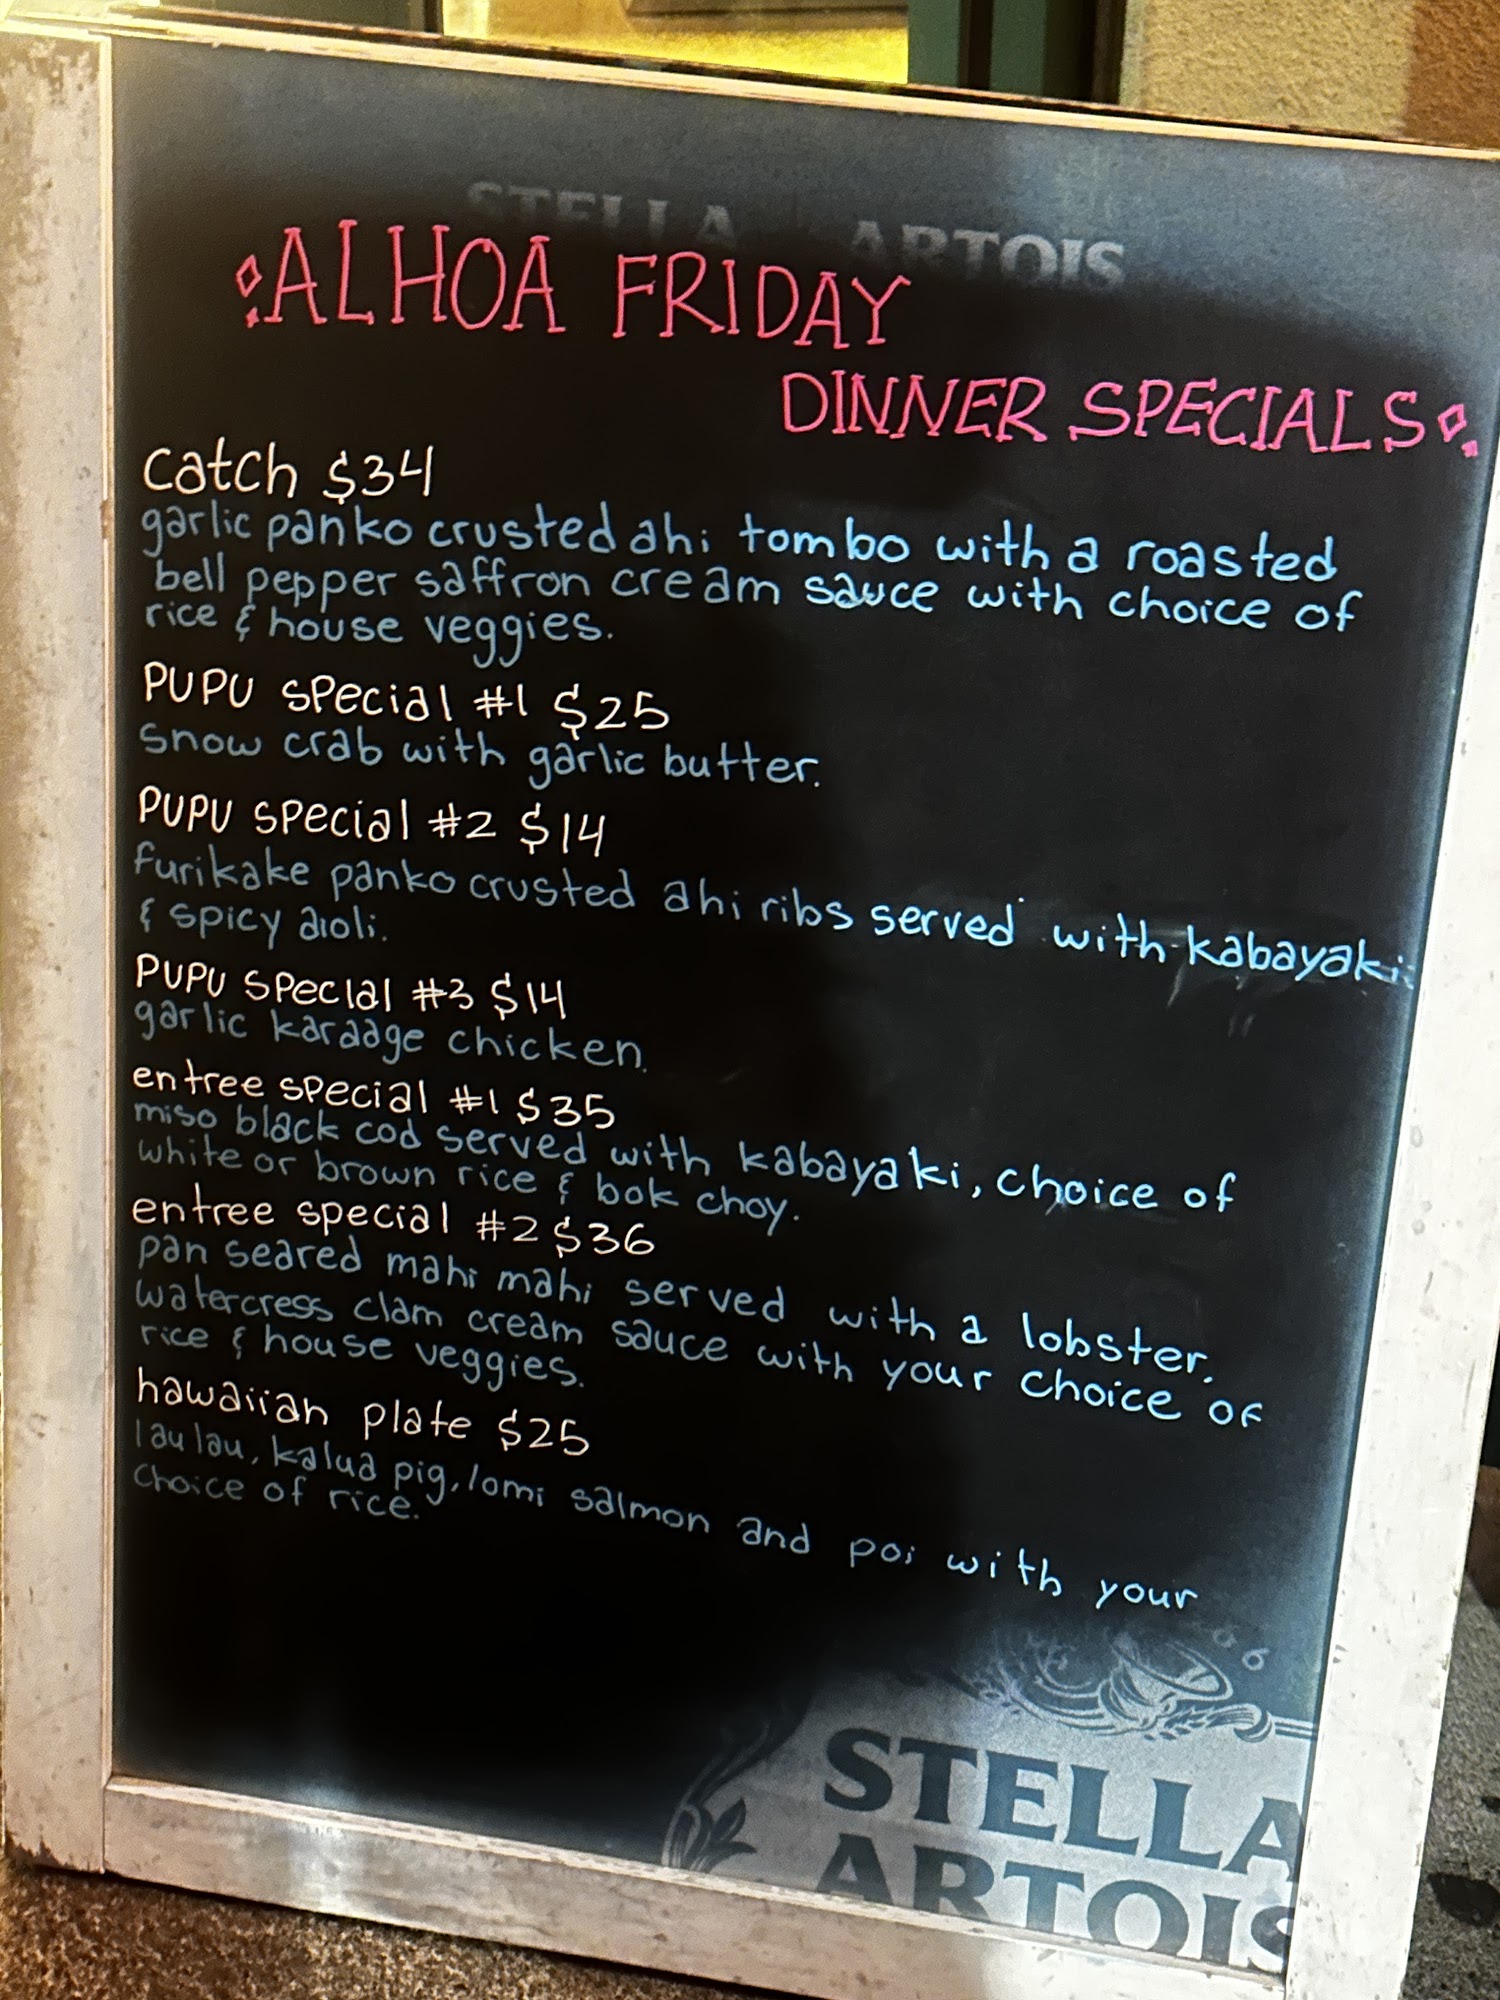 STELLA ARTOIS
ALHOA FRIDAY
DINNER SPECIALS
catch $34
garlic panko crusted ahi tombo with a roasted
bell pepper saffron cream sauce with choice of
rice & house veggies.
PUPU special #1 $25
snow crab with garlic butter.
PUPU special #2 $14
furikake panko crusted ahi ribs served with kabayaki
& spicy aioli.
PUPU special #3 $14
garlic karaage chicken.
entree special #1 $35
miso black cod served with kabayaki, choice of
white or brown rice & bok choy.
entree special #2 $36
pan seared mahi mahi served with a lobster,
watercress clam cream sauce with your choice of
rice & house veggies.
hawaiian plate $25
lau lau, kalua pig, lomi salmon and poi with your
choice of rice.
STELLA
ARTOIS